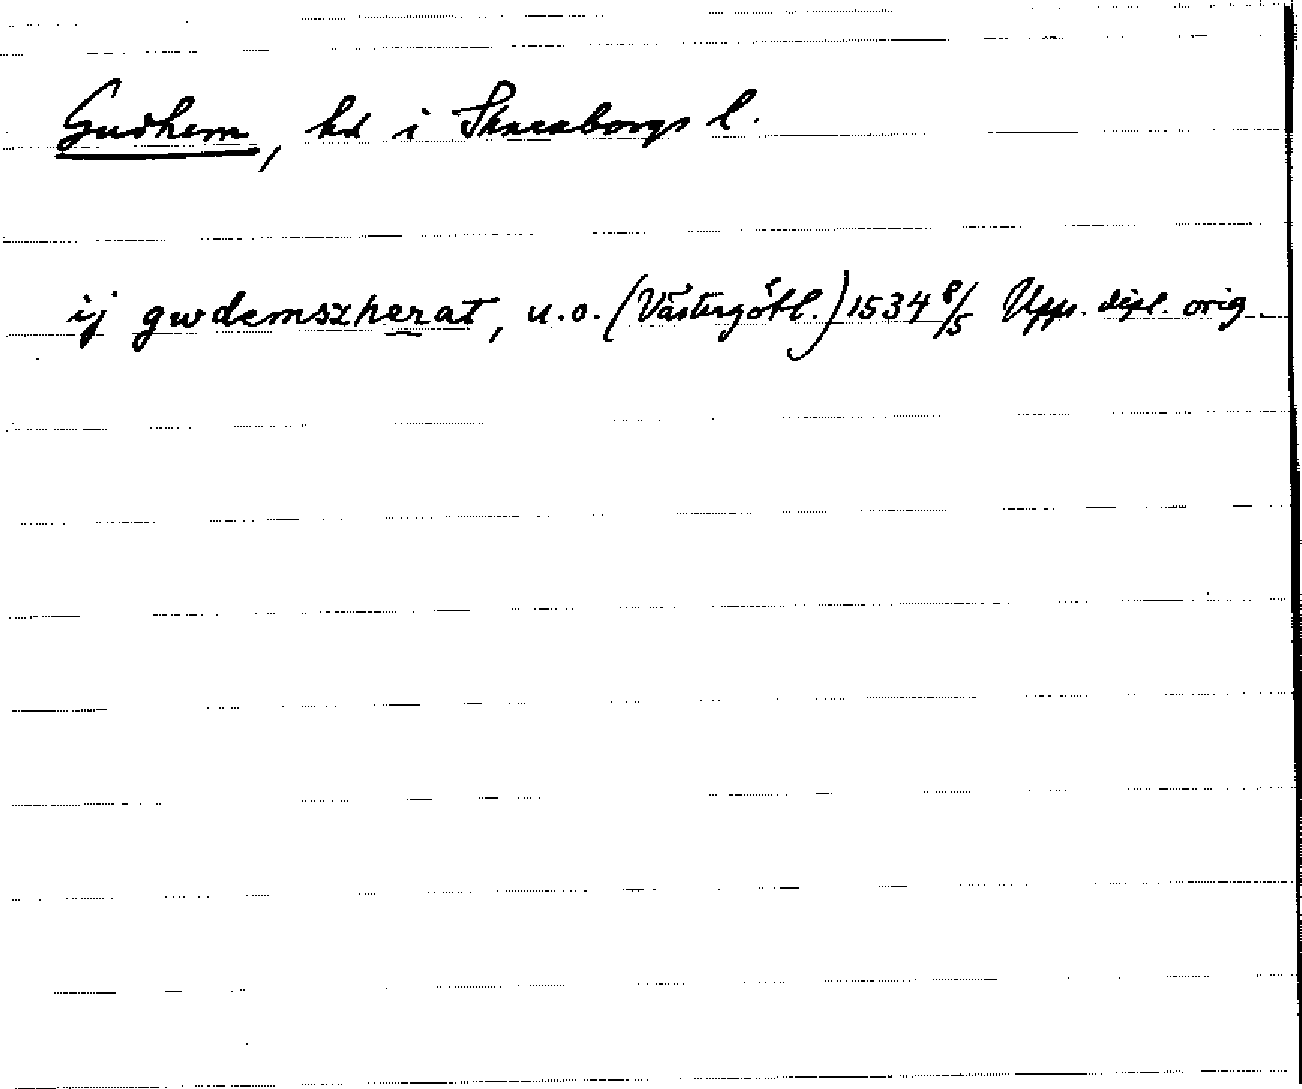 Gudhem, hd i Skaraborgs l.
ij gwdemszherat, u.o. (Västergötl.) 1534 8/5 Upps. dipl. orig.